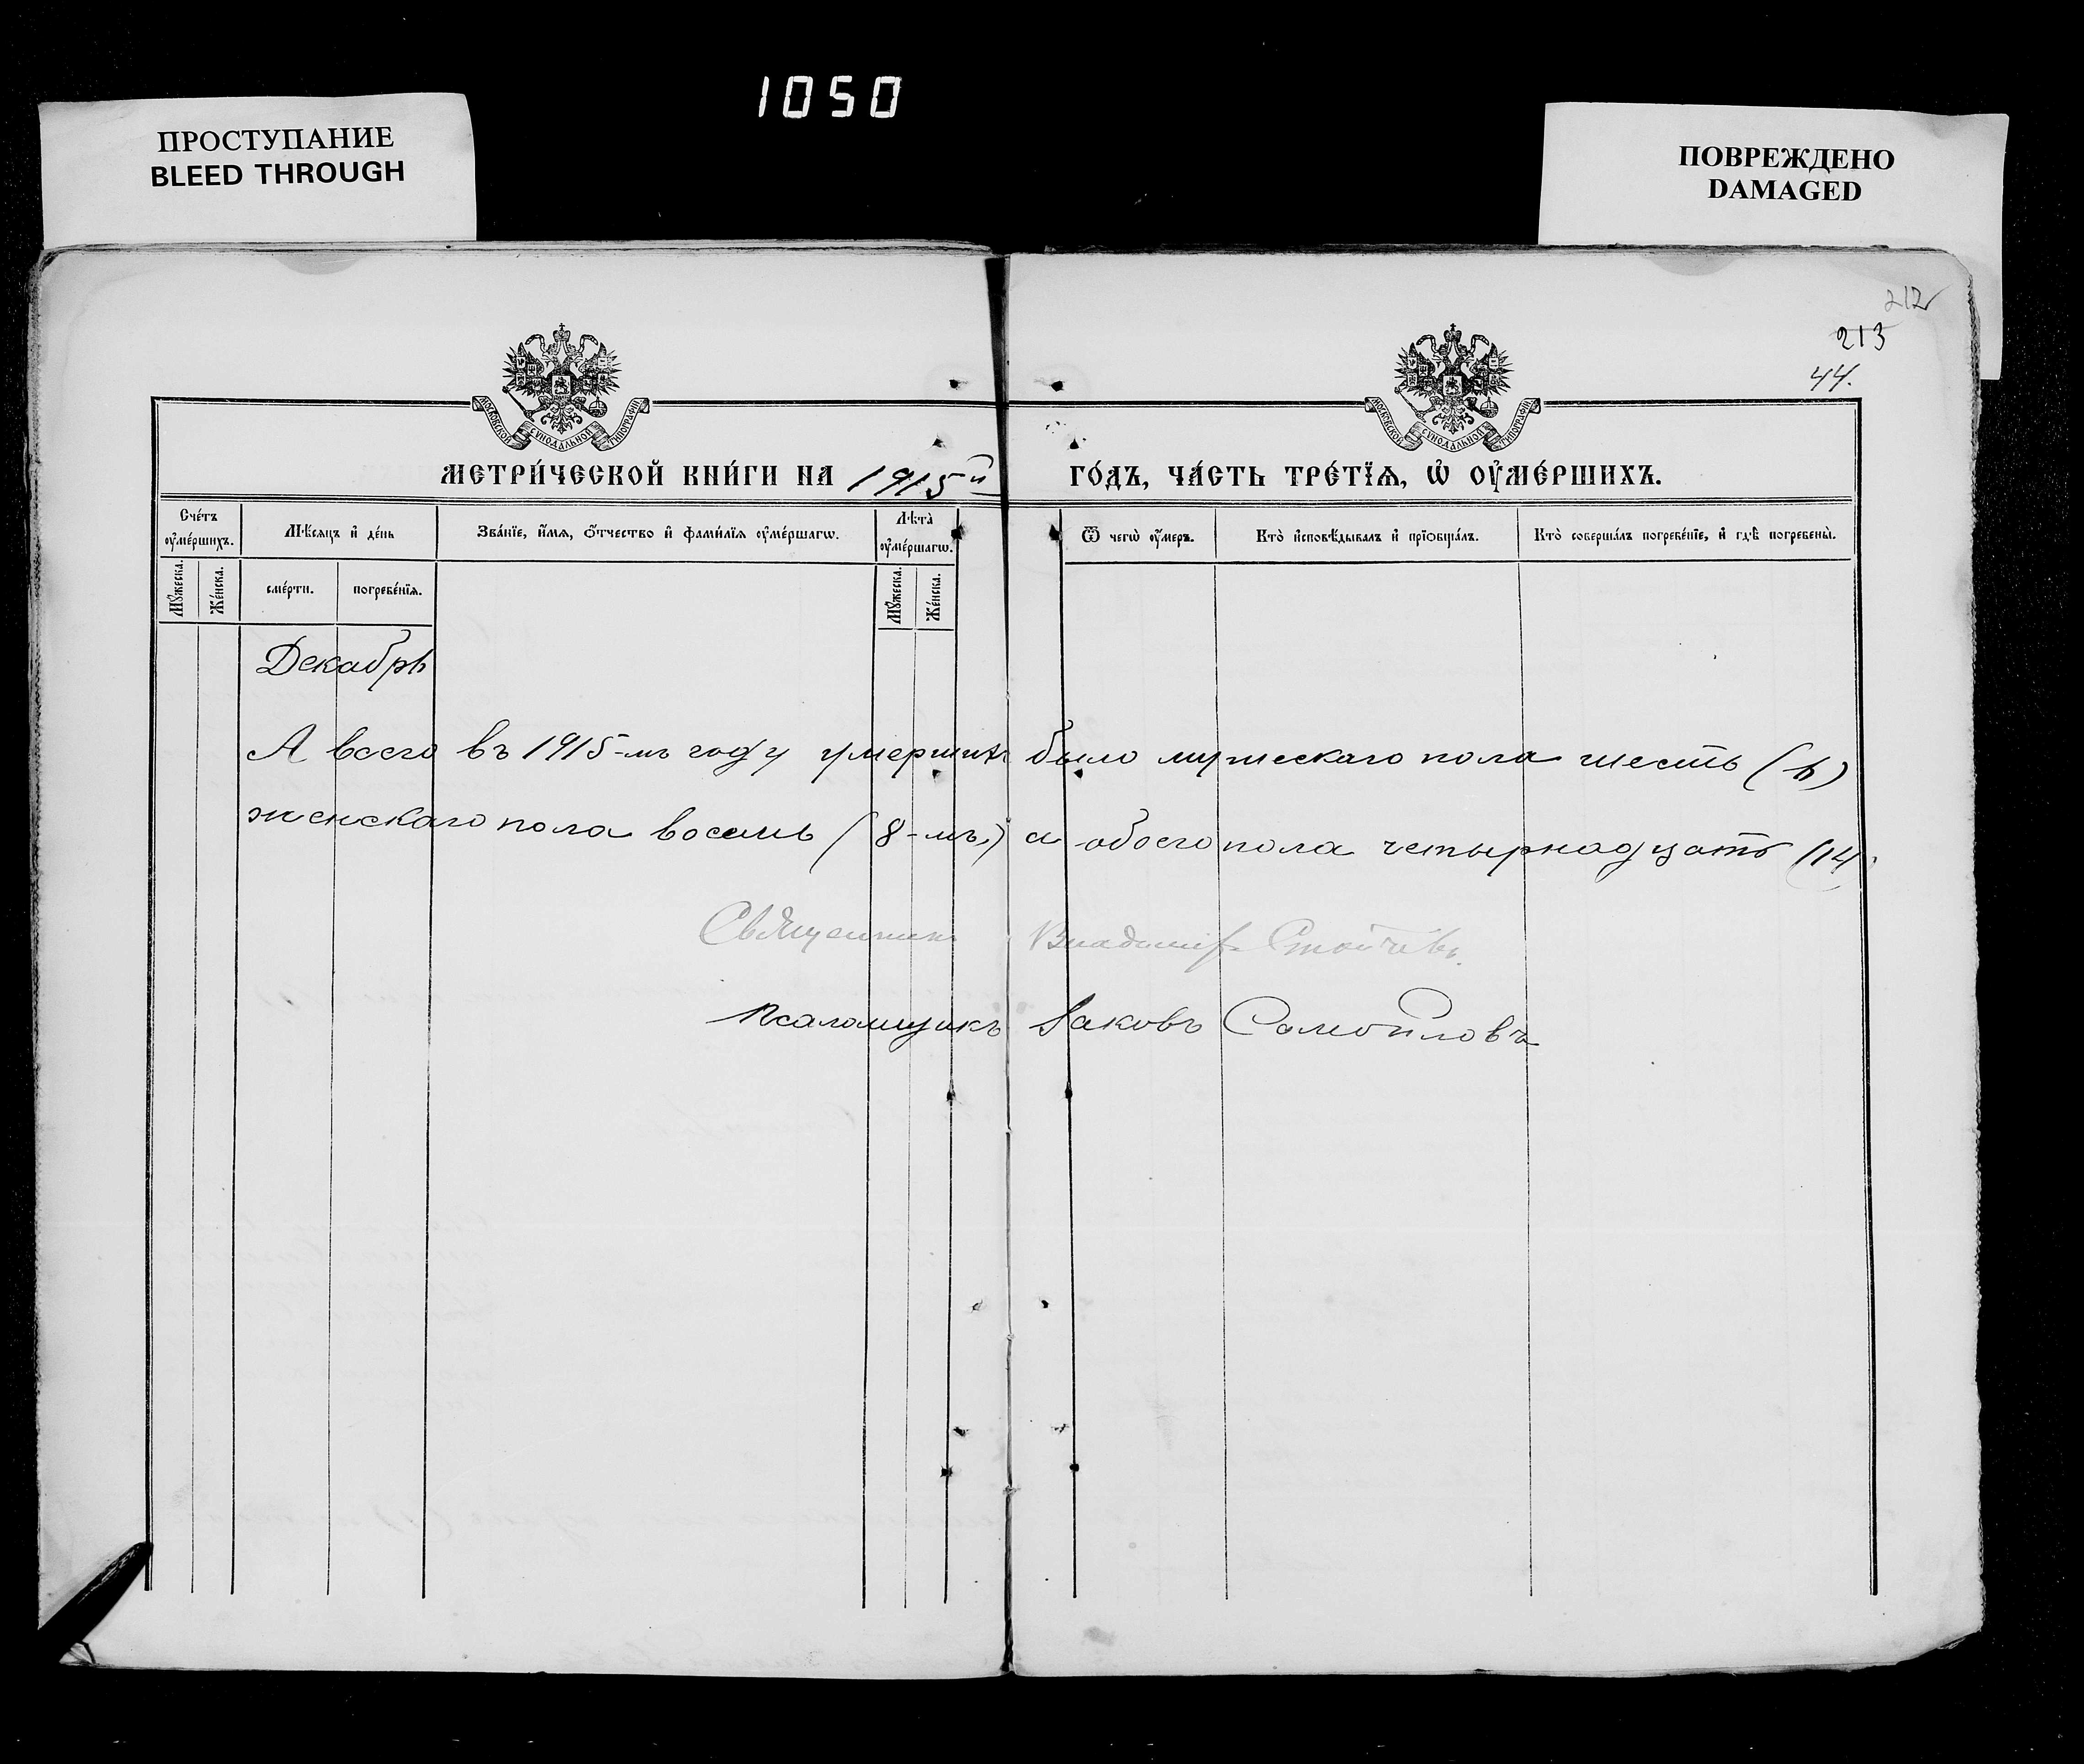 1050
ПРОСТУПАНИЕ
BLEED THROUGH
ПОВРЕЖДЕНО
DAMAGED
212
213
44.
МОСКОВСКОЙ СѴНОДАЛЬНОЙ ТИПОГРАФІИ
МОСКОВСКОЙ СѴНОДАЛЬНОЙ ТИПОГРАФІИ
МЕТРИ́ЧЕСКОЙ КНИ́ГИ НА 1915й ГО́ДЪ, ЧА́СТЬ ТРЕ́ТЇѦ, Ѡ҆ ОУ҆МЕ́РШИХЪ.
Сче́тъ оу҆ме́ршихъ.
Мѣ́сяцъ и҆ де́нь
Зва́нїе, и҆́мя, ѻ҆́тчество и҆ фами́лїя оу҆ме́ршагѡ.
Лѣта̀ оу҆ме́ршагѡ.
Ѿ чегѡ̀ оу҆́меръ.
Кто̀ и҆сповѣ́дывалъ и҆ прїѡбща́лъ.
Кто̀ соверша́лъ погребе́нїе, и҆ гдѣ̀ погребены̀.
Мꙋ́жеска.
Же́нска.
сме́рти.
погребе́нїя.
Мꙋ́жеска.
Же́нска.
Декабрь
А всего въ 1915-мъ году умершихъ было мужескаго пола шесть (6)
женскаго пола восемь (8-мь) а обоего пола четырнадцать (14
Священникъ Владиміръ Стойчевъ.
Псаломщикъ Іаковъ Самойловъ